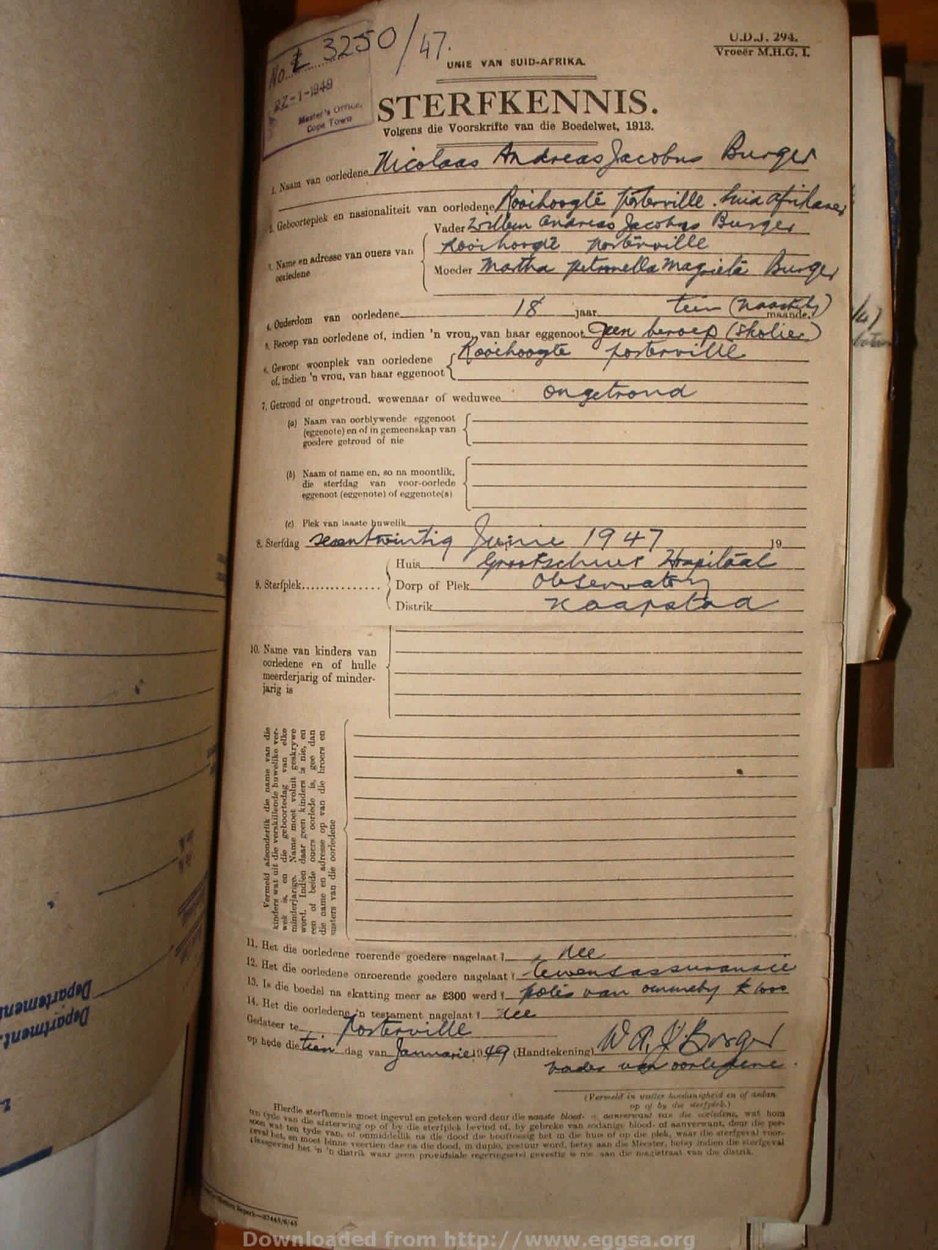 No. E 3250/47.
22-1-1949
Master's Office,
Cape Town
U.D.J. 294.
Vroeër M.H.G. I.
UNIE VAN SUID-AFRIKA.
STERFKENNIS.
Volgens die Voorskrifte van die Boedelwet, 1913.
1. Naam van oorledene Nicolaas Andreas Jacobus Burger
2. Geboorteplek en nasionaliteit van oorledene Rooihoogte Porterville. Suid Afrikaner
3. Name en adresse van ouers van oorledene
Vader Willem Andreas Jacobus Burger
Rooihoogte Porterville
Moeder Martha Petronella Magrieta Burger
4. Ouderdom van oorledene 18 jaar tien (naastely) maande.
5. Beroep van oorledene of, indien 'n vrou, van haar eggenoot Geen beroep (Skolier)
6. Gewone woonplek van oorledene
of, indien 'n vrou, van haar eggenoot
Rooihoogte Porterville
7. Getroud of ongetroud, wewenaar of weduwee ongetroud
(a) Naam van oorblywende eggenoot
(eggenote) en of in gemeenskap van
goedere getroud of nie
(b) Naam of name en, so na moontlik,
die sterfdag van voor-oorlede
eggenoot (eggenote) of eggenote(s)
(c) Plek van laaste huwelik
8. Sterfdag sewentwintig Junie 1947 19
9. Sterfplek
Huis Grootschuur Hospitaal
Dorp of Plek Observatory
Distrik Kaapstad
10. Name van kinders van
oorledene en of hulle
meerderjarig of minder-
jarig is
Vermeld afsonderlik die name van die
kinders wat uit die verskillende huwelike ver-
wek is, en die geboortedag van elke
minderjarige. Name moet voluit geskrywe
word. Indien daar geen kinders is nie, en
een of beide ouers oorlede is, gee dan
die name en adresse op van die broers en
susters van die oorledene
11. Het die oorledene roerende goedere nagelaat? Nee
12. Het die oorledene onroerende goedere nagelaat? Lewensassuransie
13. Is die boedel na skatting meer as £300 werd? polis van
14. Het die oorledene 'n testament nagelaat? Nee
Gedateer te Porterville
op hede die tien dag van Januarie 1949 (Handtekening) W A J Burger
vader van oorledene.
(Vermeld in watter hoedanigheid en of aldan
op of by die sterfplek.)
Hierdie sterfkennis moet ingevul en geteken word deur die naaste bloed- of aanverwant van die oorledene, wat hom
ten tyde van die afsterwing op of by die sterfplek bevind of, by gebreke van sodanige bloed- of aanverwant, deur die per-
soon wat ten tyde van, of onmiddellik na die dood die hooftoesig het in die huis of op die plek, waar die sterfgeval voor-
geval het, en moet binne veertien dae na die dood, in duplo, gestuur word, hetsy aan die Meester, hetsy indien die sterfgeval
plaasgevind het in 'n distrik waar geen provinsiale regeringsetel gevestig is nie aan die magistraat van die distrik.
Department
Departement
Downloaded from http://www.eggsa.org